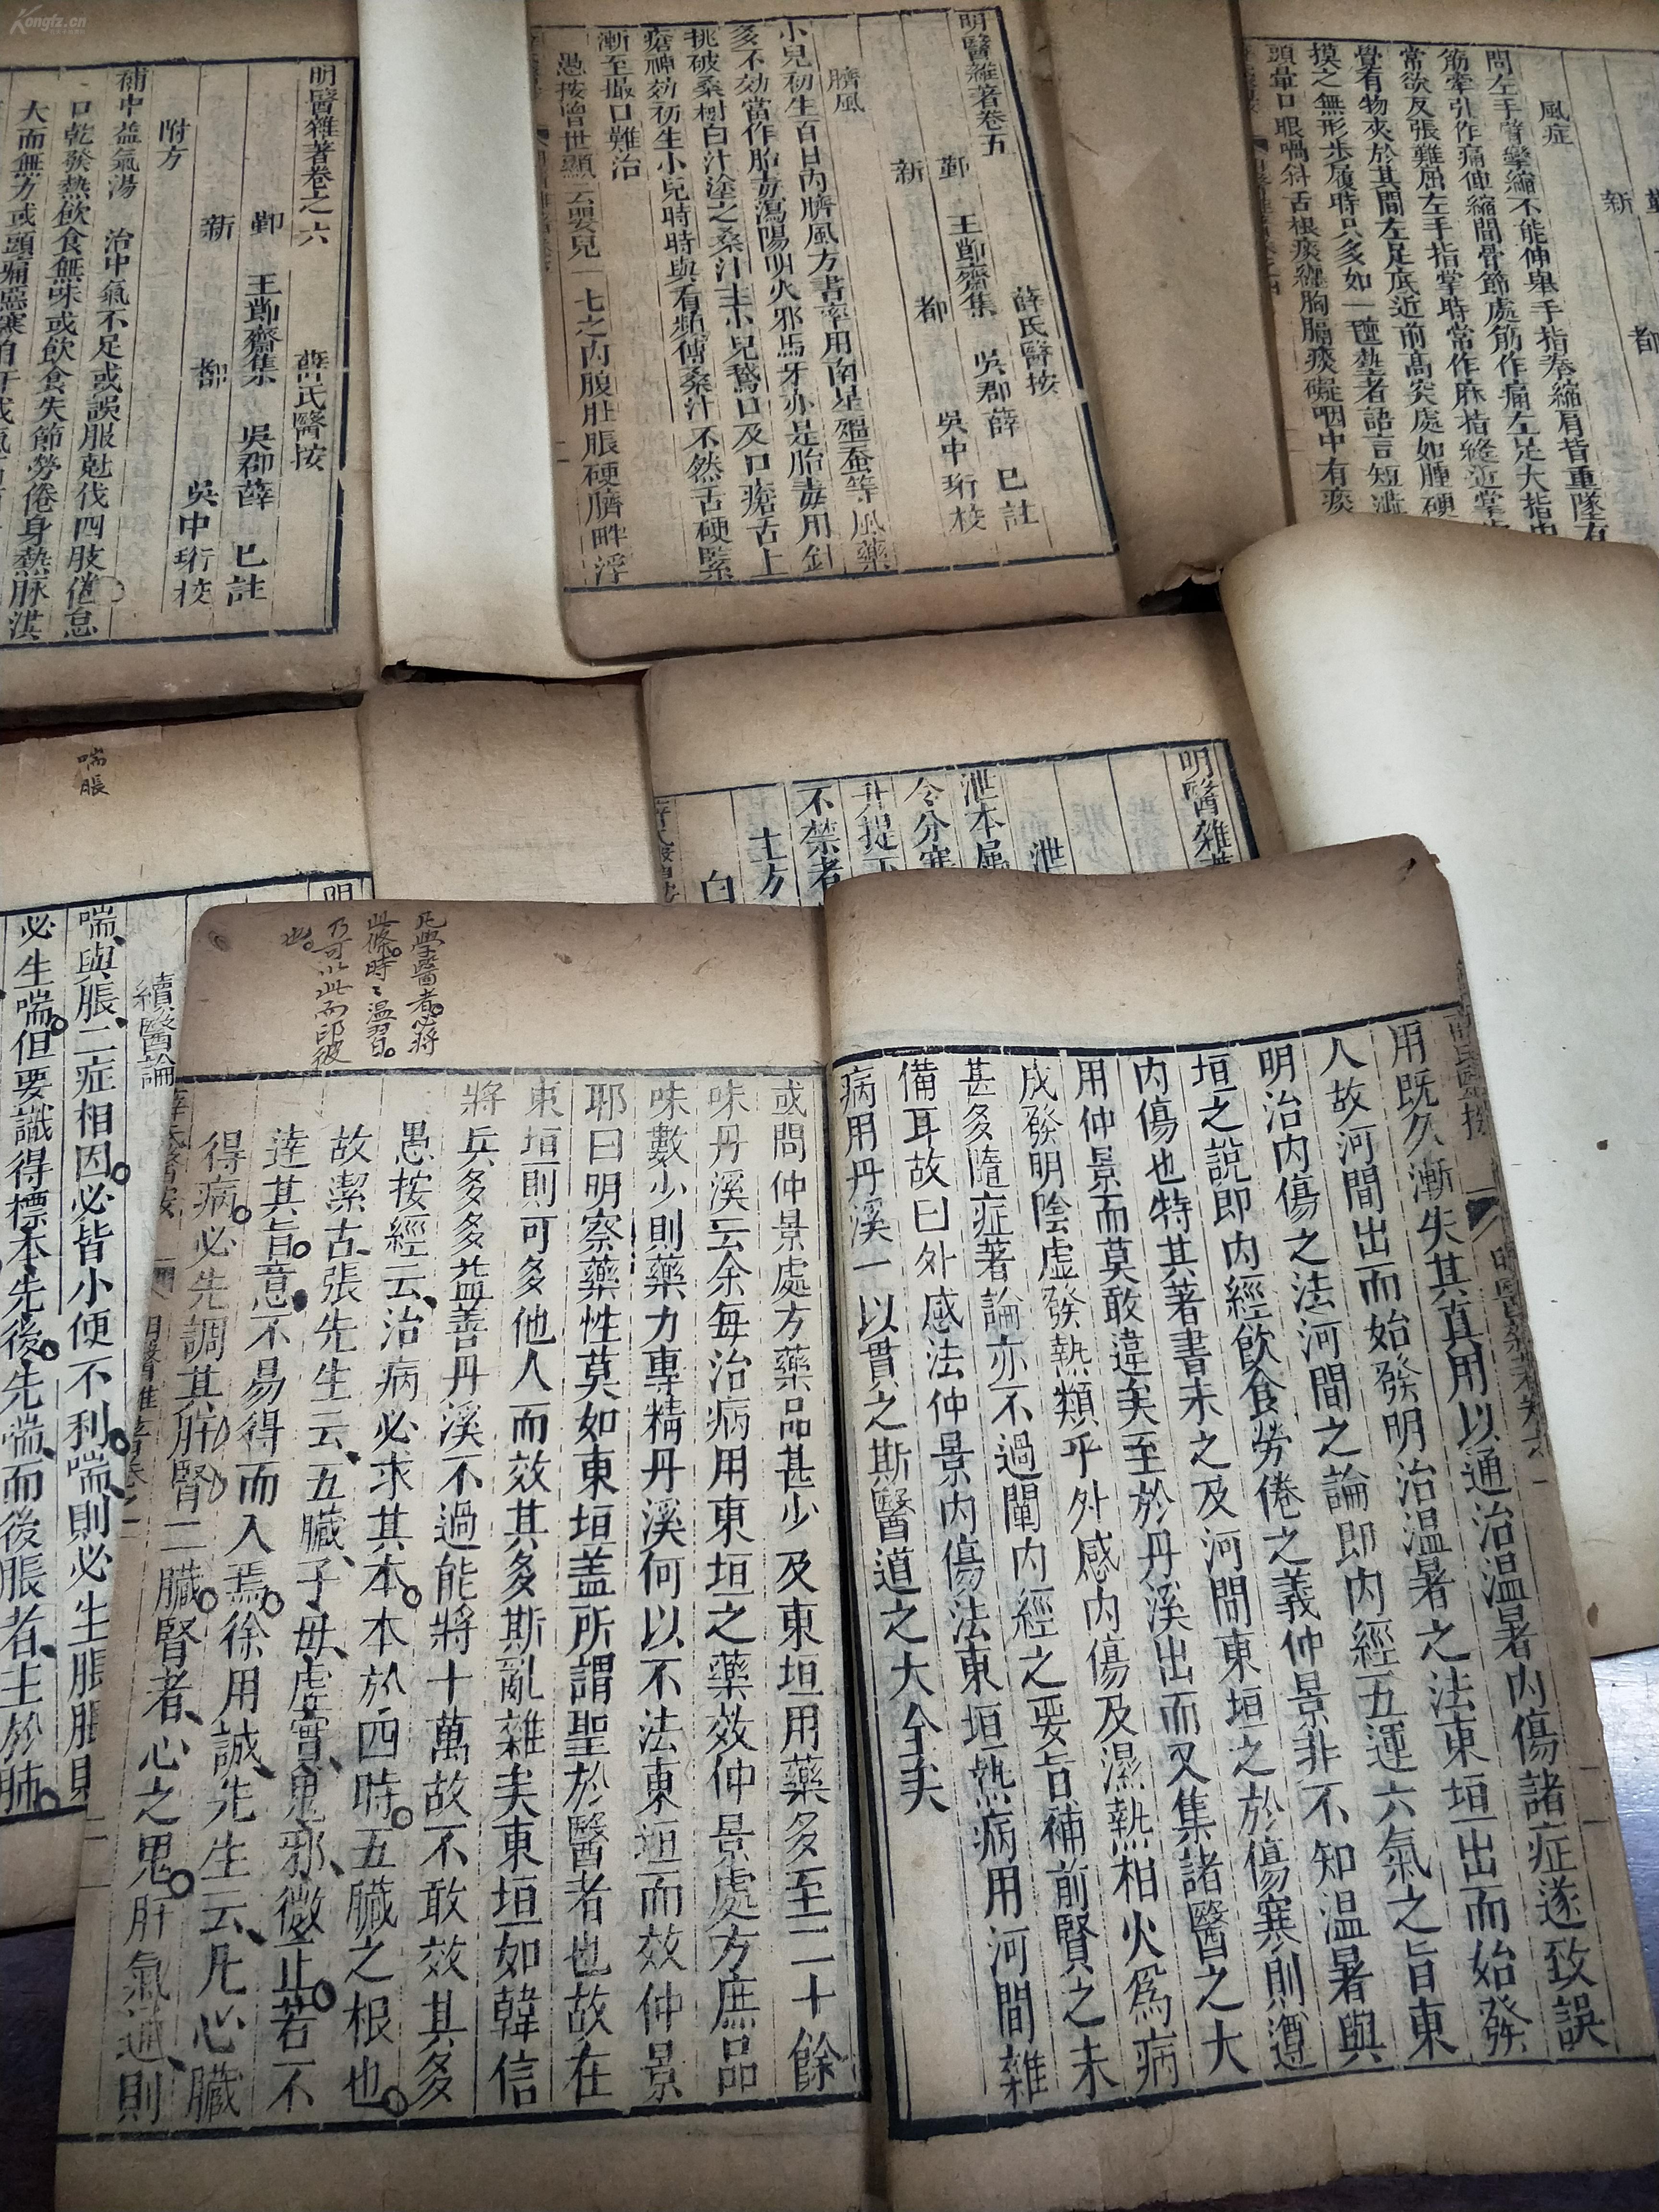 Kongfz.cn
明醫雜著卷之六
薛氏醫按
鄞 王節齋集 吳郡薛 已註
新 都 吳中珩校
附方
補中益氣湯 治中氣不足或誤服尅伐四肢倦怠
口乾發熱飲食無味或飲食失節勞倦身熱脉洪
大而無力或頭痛惡寒自汗
明醫雜著卷五
薛氏醫按
鄞 王節齋集 吳郡薛 已註
新 都 吳中珩校
臍風
小兒初生百日內臍風方書率用南星殭蚕等風藥
多不効當作胎毒瀉陽明火邪馬牙亦是胎毒用針
挑破桑樹白汁塗之桑汁主小兒鵝口及口瘡舌上
瘡神効初生小兒時時與看頻傅桑汁不然舌硬緊
漸至撮口難治
愚按曾世顯云嬰兒一七之內腹肚脹硬臍畔浮
新 都
風症
問左手臂攣縮不能伸舉手指拳縮肩背重墜有
筋牽引作痛伸縮間骨節處筋作痛左足大指
常欲反張難屈左手指掌時常作麻指縫近掌
覺有物夾於其間左足底近前高突處如腫硬
摸之無形步履時只多如一 者語言短澁
頭暈口眼喎斜舌根痰纏胸膈痰礙咽中有痰
喘脹
續醫論
喘與脹二症相因必皆小便不利喘則必生脹脹則
必生喘但要識得標本先後先喘而後脹者主於肺
明醫雜
泄
泄本屬
令分寒
升提下
不禁者
土方
白
用既久漸失其真用以通治温暑內傷諸症遂致誤
人故河間出而始發明治温暑之法東垣出而始發
明治內傷之法河間之論即內經五運六氣之旨東
垣之說即內經飲食勞倦之義仲景非不知温暑與
內傷也特其著書未之及河間東垣之於傷寒則遵
用仲景而莫敢違矣至於丹溪出而又集諸醫之大
成發明陰虛發熱類乎外感內傷及濕熱相火爲病
甚多隨症著論亦不過闡內經之要旨補前賢之未
備耳故曰外感法仲景內傷法東垣熱病用河間雜
病用丹溪一以貫之斯醫道之大全矣
凡學醫者必將
此條時時温習
乃可以此而印彼
也
或問仲景處方藥品甚少及東垣用藥多至二十餘
味丹溪云余每治病用東垣之藥效仲景處方庶品
味數少則藥力專精丹溪何以不法東垣而效仲景
耶曰明察藥性莫如東垣盖所謂聖於醫者也故在
東垣則可多他人而效其多斯亂雜矣東垣如韓信
將兵多多益善丹溪不過能將十萬故不敢效其多
愚按經云治病必求其本本於四時五臟之根也
故潔古張先生云五臟子母虛實鬼邪微正若不
達其旨意不易得而入焉徐用誠先生云凡心臟
得病必先調其肝腎二臟腎者心之鬼肝氣通則